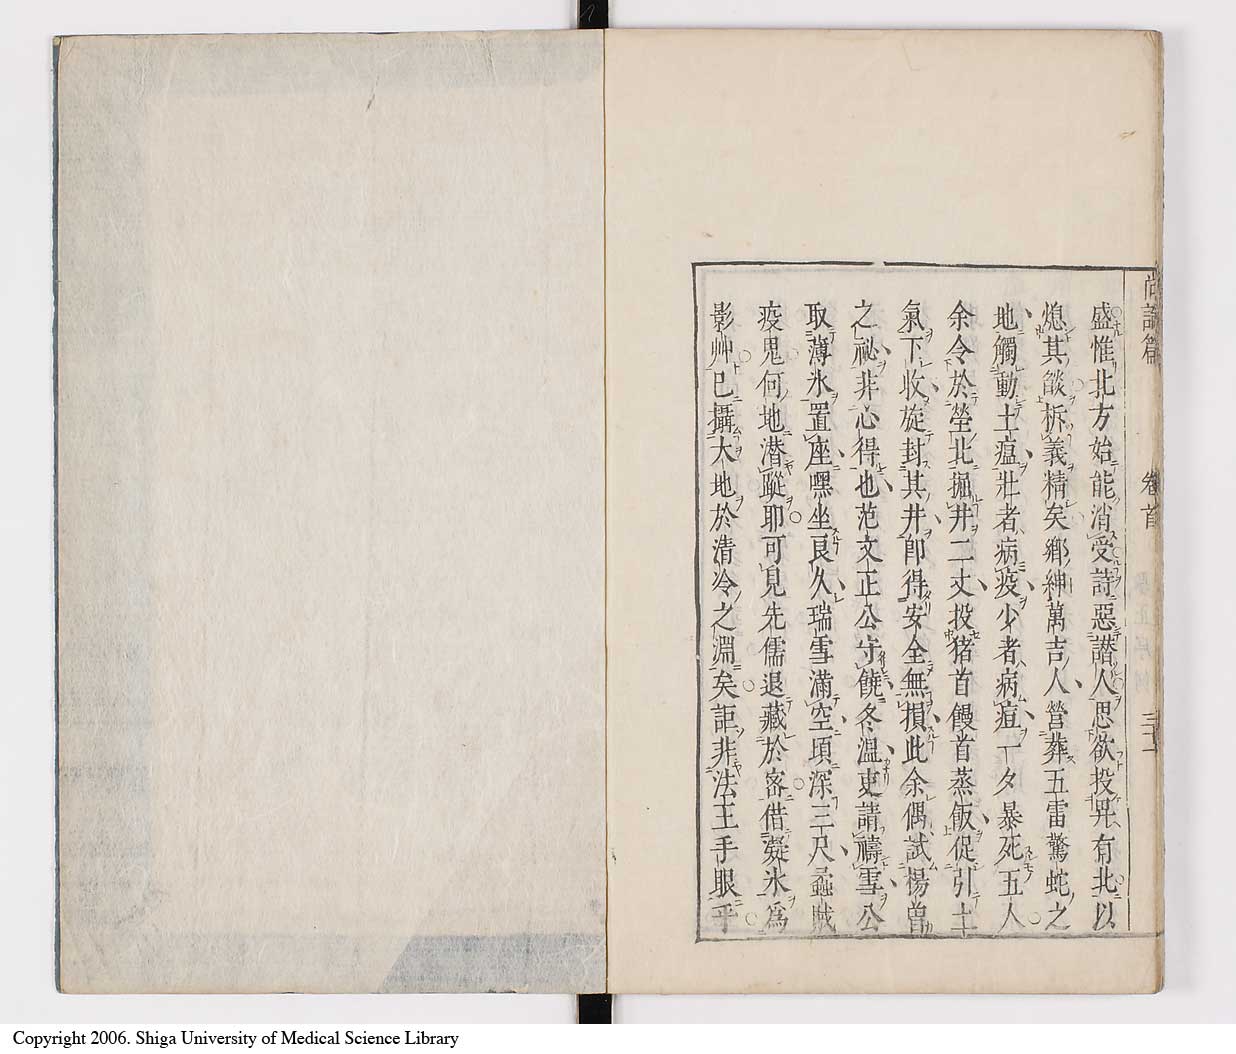 盛惟北方始能消受詩惡譖人思欲投畀有北以
熄其燄析義精矣鄉紳萬吉人營葬五雷驚蛇之
地觸動土瘟壯者病疫少者病痘一夕暴死五人
余令於塋北掘井二丈投猪首饅首蒸飯促引土
氣下收旋封其井卽得安全無損此余偶試楊曾
之祕非心得也范文正公守饒冬温吏請禱雪公
取薄氷置座嘿坐良久瑞雪滿空頃深三尺蝨賊
疫鬼何地潜蹤耶可見先儒退藏於密借凝氷爲
影艸已攝大地於清冷之淵矣詎非法王手眼乎
卷首
Copyright 2006. Shiga University of Medical Science Library